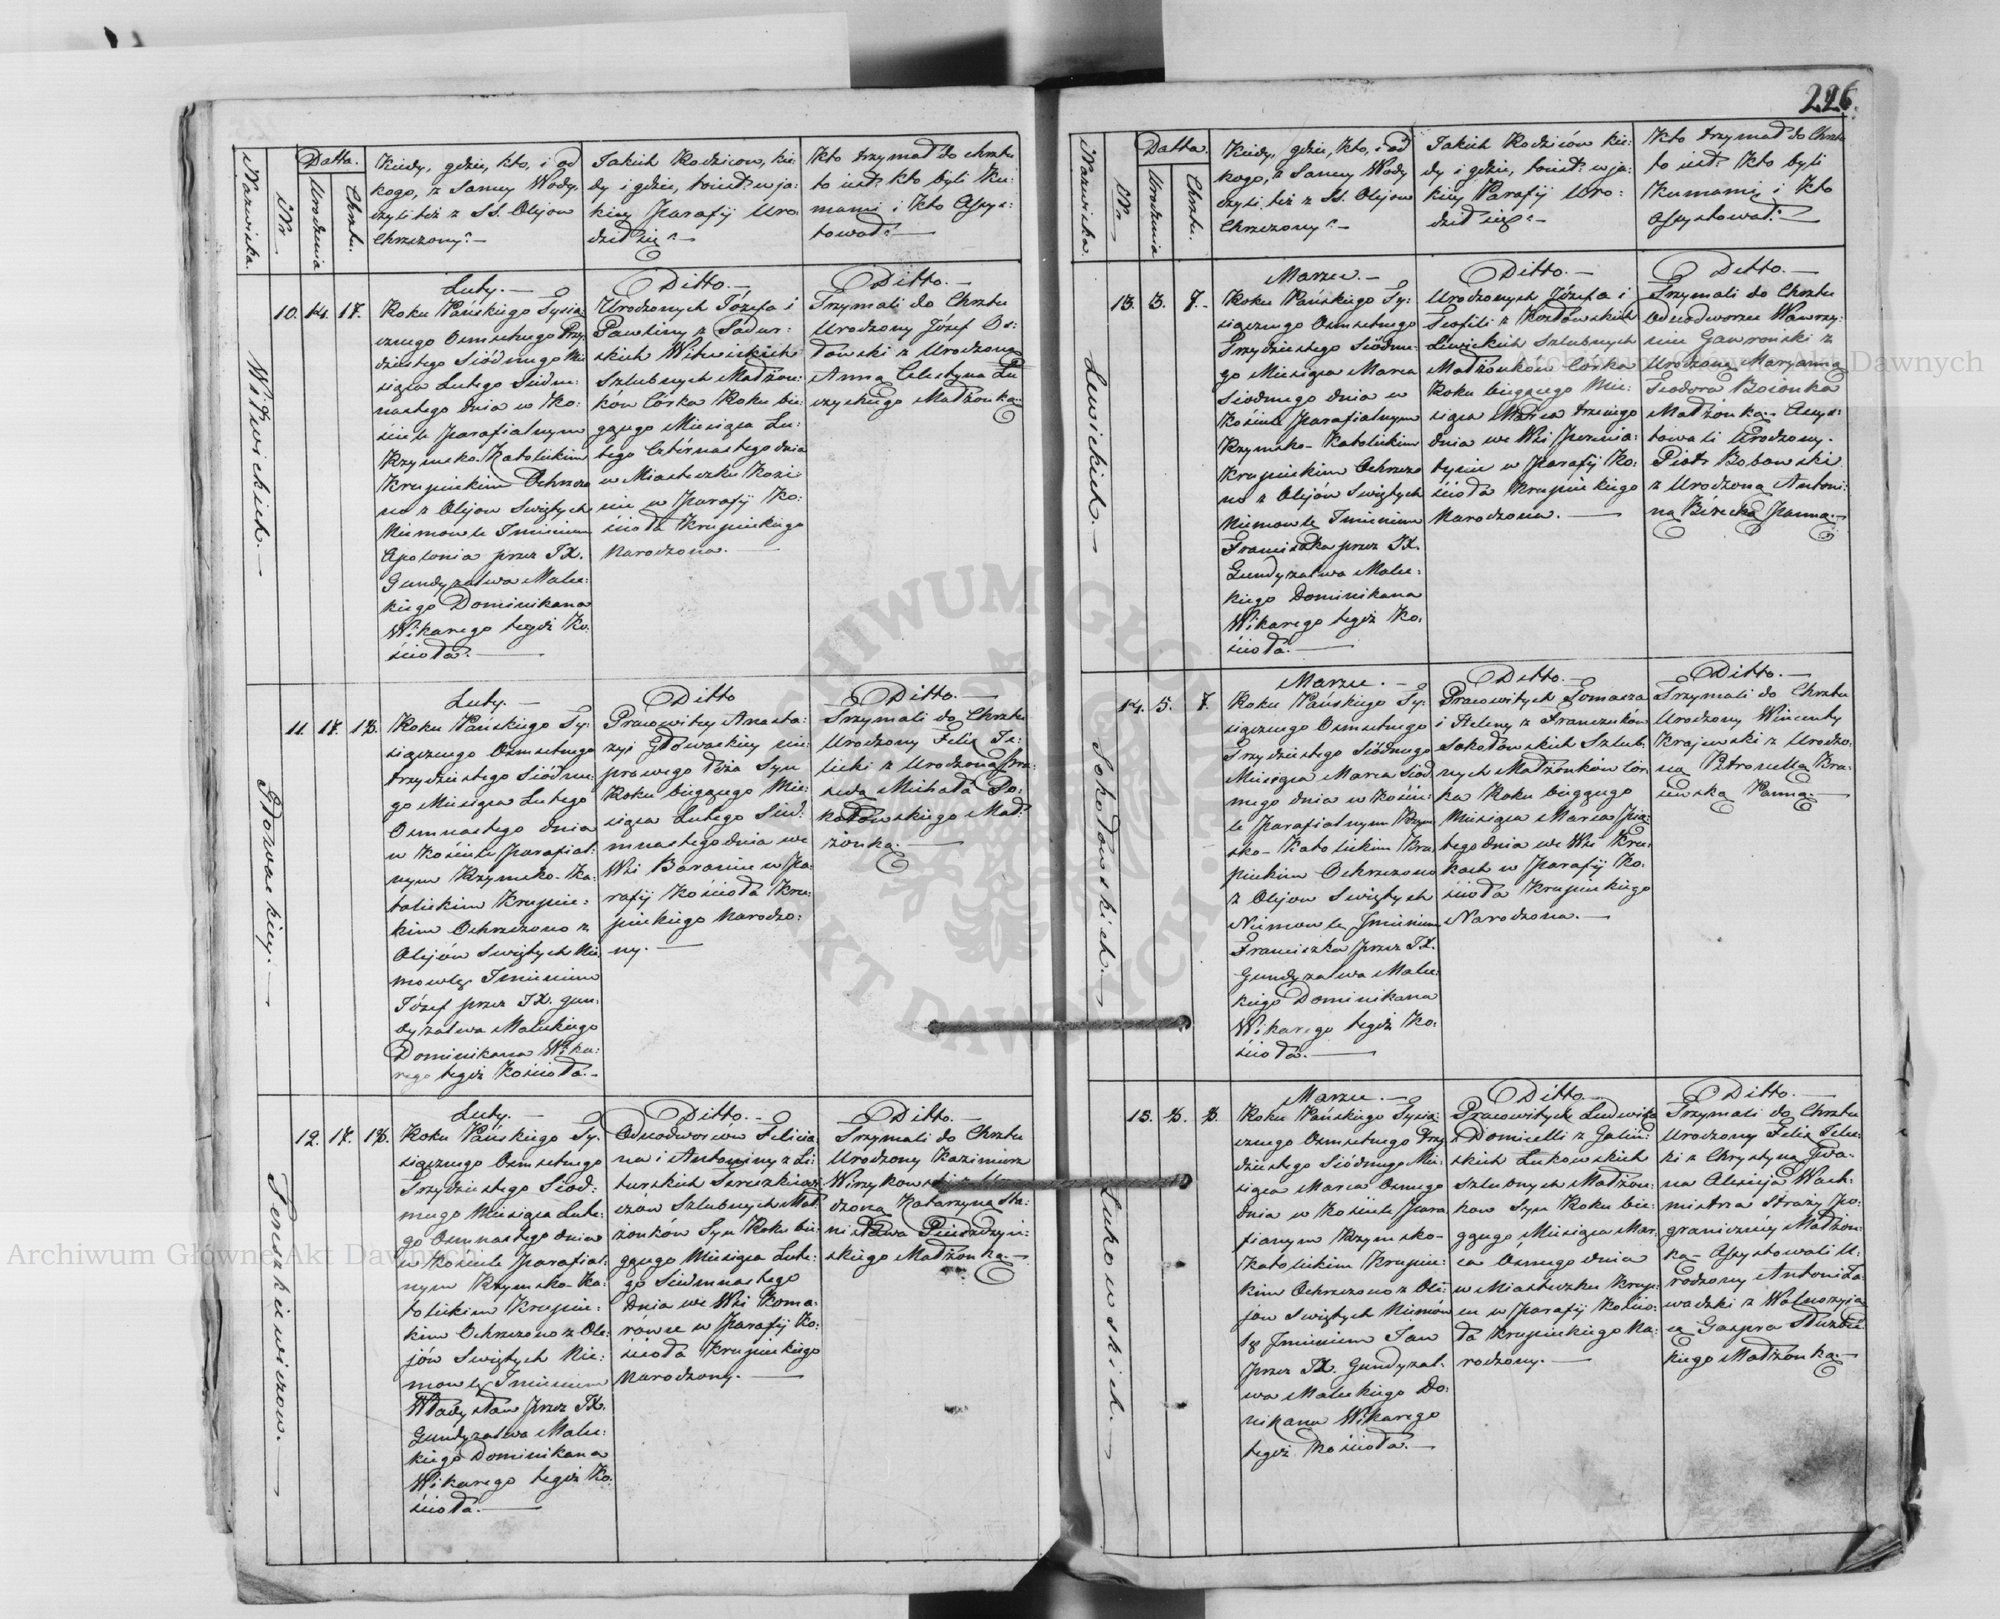 226.
Nazwiska.
Nr.
Datta.
Urodzenia
Chrztu.
Kiedy, gdzie, kto, i od
kogo, z Samey Wody,
czyli też z SS. Olejow
Chrzczony?—
Jakich Rodzicow, kie
dy i gdzie, toiest: w ja:
kiey Parafij Uro
dził się?—
Kto trzymał do chrztu
to iest: kto byli Ku:
mami i kto Assys:
tował?—
Witwickich.—
10. 14. 17.
Luty.—
Roku Pańskiego Tysią
cznego Osmsetnego Trzy
dziestego Siódmego Mie
siąca Lutego Siedm
nastego dnia w Ko:
ściele Parafialnym
Rzymsko-Katolickim
Krupieckim Ochrzczo
no z Olejow Swiętych
Niemowle Imieniem
Apolonia przez JX.
Gundyzalwa Malec:
kiego Dominikana
Wikarego tegoż Ko:
ścioła.—
Ditto.—
Urodzonych Józefa i
Pawliny z
skich Witwickich
Szlubnych Małżon:
ków Córka Roku bie:
gącego Miesiąca Lu:
tego Czternastego dnia
w Miasteczku Kozi
nie w Parafij Ko:
ścioła Krupieckiego
Narodzona.—
Ditto.—
Trzymali do Chrztu
Urodzony Józef Os:
łowski z Urodzoną
Anną Celestyna Łu
czyckiego Małżonką.
Głowackiey.—
11. 17. 18.
Luty.—
Roku Pańskiego Ty:
siącznego Osmsetnego
trzydziestego Siódme:
go Miesiąca Lutego
Osmnastego dnia
w Kościele Parafial:
nym Rzymsko-Ka:
tolickim Krupiec:
kim Ochrzczono z
Olejów Swiętych Nie
mowlę Imieniem
Józef przez JX. Gun:
dyzalwa Maleckiego
Dominikana Wika:
rego tegoż Kościoła.—
Ditto
Pracowitey Anasta:
zyi Głowackiey nie:
prawego łoża Syn
Roku biegącego Mie:
siąca Lutego Sied:
mnastego dnia we
Wsi Baranie w Pa:
rafij Kościoła Kru:
pieckiego Narodzo:
ny.—
Ditto.—
Trzymali do Chrztu
Urodzony Felix
licki z Urodzoną
Michała Po:
kotowskiego Mał:
żonką.—
Tereszkiewiczow.—
12. 17. 18.
Luty.—
Roku Pańskiego Ty:
siącznego Osmsetnego
Trzydziestego Siod:
mego Miesiąca Lute:
go Osmnastego dnia
w Kościele Parafial:
nym Rzymsko-Ka:
tolickim Krupiec:
kim Ochrzczono z Ole:
jów Swiętych Nie:
mowlę Imieniem
Władysław przez JX.
Gundyzalwa Malec:
kiego Dominikana
Wikarego tegoż Ko:
ścioła.—
Ditto.—
Odnodworców Felicia
na i Antoniny z Li:
turskich Tereszkiewi
czów Szlubnych Mał
żonków Syn Roku bie:
gącego Miesiąca Lute:
go Siedmnastego
dnia we Wsi Koma:
rówce w Parafij Ko:
ścioła Krupieckiego
Narodzony.—
Ditto.—
Trzymali do Chrztu
Urodzony Kazimierz
dzoną Katarzyną Sta:
nisława
skiego Małżonką.—
Nazwiska.
Nr.
Datta.
Urodzenia
Chrztu.
Kiedy, gdzie, kto, i od
kogo, z Samey Wody
czyli też z SS. Olejow
Chrzczony?—
Jakich Rodziców kie:
dy i gdzie, toiest: w ja:
kiey Parafij Uro:
dził się?—
Kto trzymał do Chrztu
to iest: Kto byli
Kumami i Kto
Assystował?
Lewickich.—
13. 3. 7.
Marzec.—
Roku Pańskiego Ty:
siącznego Osmsetnego
Trzydziestego Siódme:
go Miesiąca Marca
Siodmego dnia w
Kościele Parafialnym
Rzymsko-Katolickim
Krupieckim Ochrzczo
no z Olejów Swiętych
Niemowle Imieniem
Franciszka przez JX.
Gundyzalwa Malec:
kiego Dominikana
Wikarego tegoż Ko:
ścioła.—
Ditto.—
Urodzonych Józefa i
Teofili z Kozłowskich
Lewickich Szlubnych
Małżonkow Córka
Roku biegącego Mie:
siąca Marca trzeciego
dnia we Wsi
tynie w Parafij Ko:
ścioła Krupieckiego
Narodzona.—
Ditto.—
Trzymali do Chrztu
Odnodworzec Wawrzy:
niec Gawroński z
Urodzoną Maryanną
Teodora Małżonką. Assys:
towali Urodzony
Piotr Bobowski
z Urodzoną Antoni:
ną Birecką Panną.—
Sokołowskich.—
14. 5. 7.
Marzec.—
Roku Pańskiego Ty:
siącznego Osmsetnego
Trzydziestego Siódmego
Miesiąca Marca Siód
mego dnia w Koście:
le Parafialnym Rzym
sko-Katolickim Kru
pieckim Ochrzczono
z Olejow Swiętych
Niemowlę Imieniem
Franciszka przez JX.
Gundyzalwa Malec:
kiego Dominikana
Wikarego tegoż Ko:
ścioła.—
Ditto.—
Pracowitych Tomasza
i Heleny z Franczuków
Sokołowskich Szlub:
nych Małżonków Cór
ka Roku biegącego
Miesiąca Marca Pią:
tego dnia we Wsi Kru
kach w Parafij Ko:
ścioła Krupieckiego
Narodzona.—
Ditto.—
Trzymali do Chrztu
Urodzony Wincenty
Krajewski z Urodzo:
ną Petronellą Kra:
iewską Panną.—
Łukowskich.—
15. 8. 8.
Marzec.—
Roku Pańskiego Tysią
cznego Osmsetnego Trzy
dziestego Siódmego Mie:
siąca Marca Osmego
dnia w Kościele Para
fianym Rzymsko-
Katolickim Krupiec:
kim Ochrzczono z Ole:
jow Swiętych Niemow
lę Imieniem Jan
przez JX. Gundyzal:
wa Maleckiego Do:
nikana Wikarego
tegoż Kościoła.—
Ditto.—
Pracowitych Ludwika
i Domicelli z Galiń:
skich Łukowskich
Szlubnych Małżon:
kow Syn Roku bie:
gącego Miesiąca Mar:
ca Osmego dnia
w Miasteczku Krup:
cu w Parafij Kościo:
ła Krupieckiego Na:
rodzony.—
Ditto.—
Trzymali do Chrztu
Urodzony Felix
ki z Chrystyną Iwa:
na Alexieja Wach:
mistrza Straży Po:
graniczney Małżon:
ką— Assystowali U:
rodzony Antoni Za:
wadzki z
Gaspra
kiego Małżonką.—
Archiwum Główne Akt Dawnych
Archiwum Główne Akt Dawnych
ARCHIWUM GŁÓWNE AKT DAWNYCH